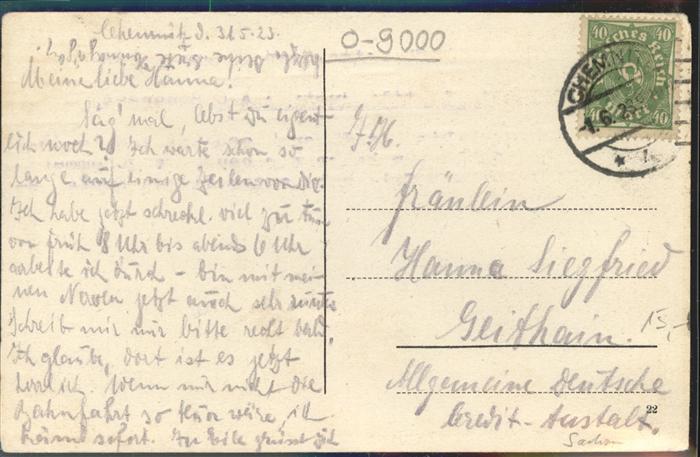 Chemnitz d. 31.5.23.
O-9000
Meine liebe Hanna!
Sag' mal, lebst Du eigent-
lich noch? Ich warte schon so
lange auf einige Zeilen von Dir.
Ich habe jetzt schreckl. viel zu tun
von früh 8 Uhr bis abends 6 Uhr
arbeite ich durch – bin mit mei-
nen Nerven jetzt auch sehr
Schreib mir nur bitte recht bald.
Ich glaube, dort ist es jetzt
herrlich. Wenn nur nicht die
Bahnfahrt so teuer wäre, ich
käme sofort. In Eile grüsst Dich
40 40
Deutsches Reich
40 40
CHEMNITZ
-1.6.23
Fräulein
Hanna Siegfried
Geithain.
15,-
Allgemeine Deutsche
Credit-Anstalt.
22
Sachsen